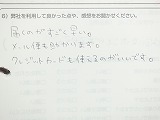 6）弊社を利用して良かった点や、感想をお聞かせください。
届くのがすごく早い。
メール便も助かります。
クレジットカードも使えるのがいいです。